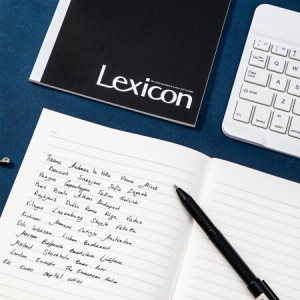 Lexicon
Tirana Andorra la Vella Vienna Minsk
Brussels Sarajevo Sofia Zagreb
Prague Copenhagen Tallinn Helsinki
Paris Berlin Athens Budapest
Reykjavik Dublin Rome Riga Vaduz
Vilnius Luxembourg Skopje Valletta
Chisinau Monaco Cetinje Amsterdam
Oslo Warsaw Lisbon Bucharest
Moscow Belgrade Bratislava Ljubljana
Madrid Stockholm Bern Kiev
London Ankara The European Union